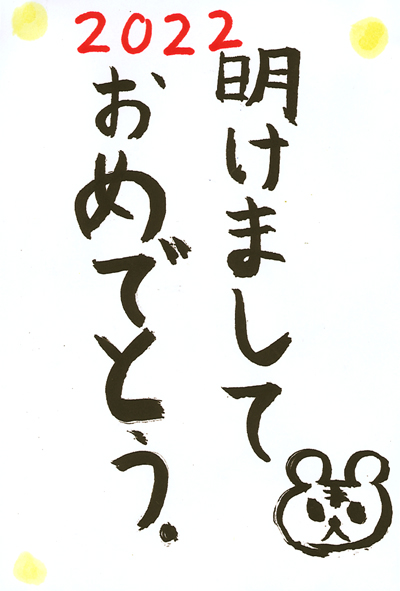 2022
明けまして
おめでとう。